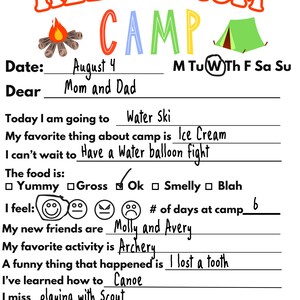 CAMP
Date: August 4 M Tu W Th F Sa Su
Dear Mom and Dad
Today I am going to Water Ski
My favorite thing about camp is Ice Cream
I can't wait to Have a Water balloon fight
The food is:
Yummy Gross Ok Smelly Blah
I feel: # of days at camp 6
My new friends are Molly and Avery
My favorite activity is Archery
A funny thing that happened is I lost a tooth
I've learned how to Canoe
I miss playing with Scout